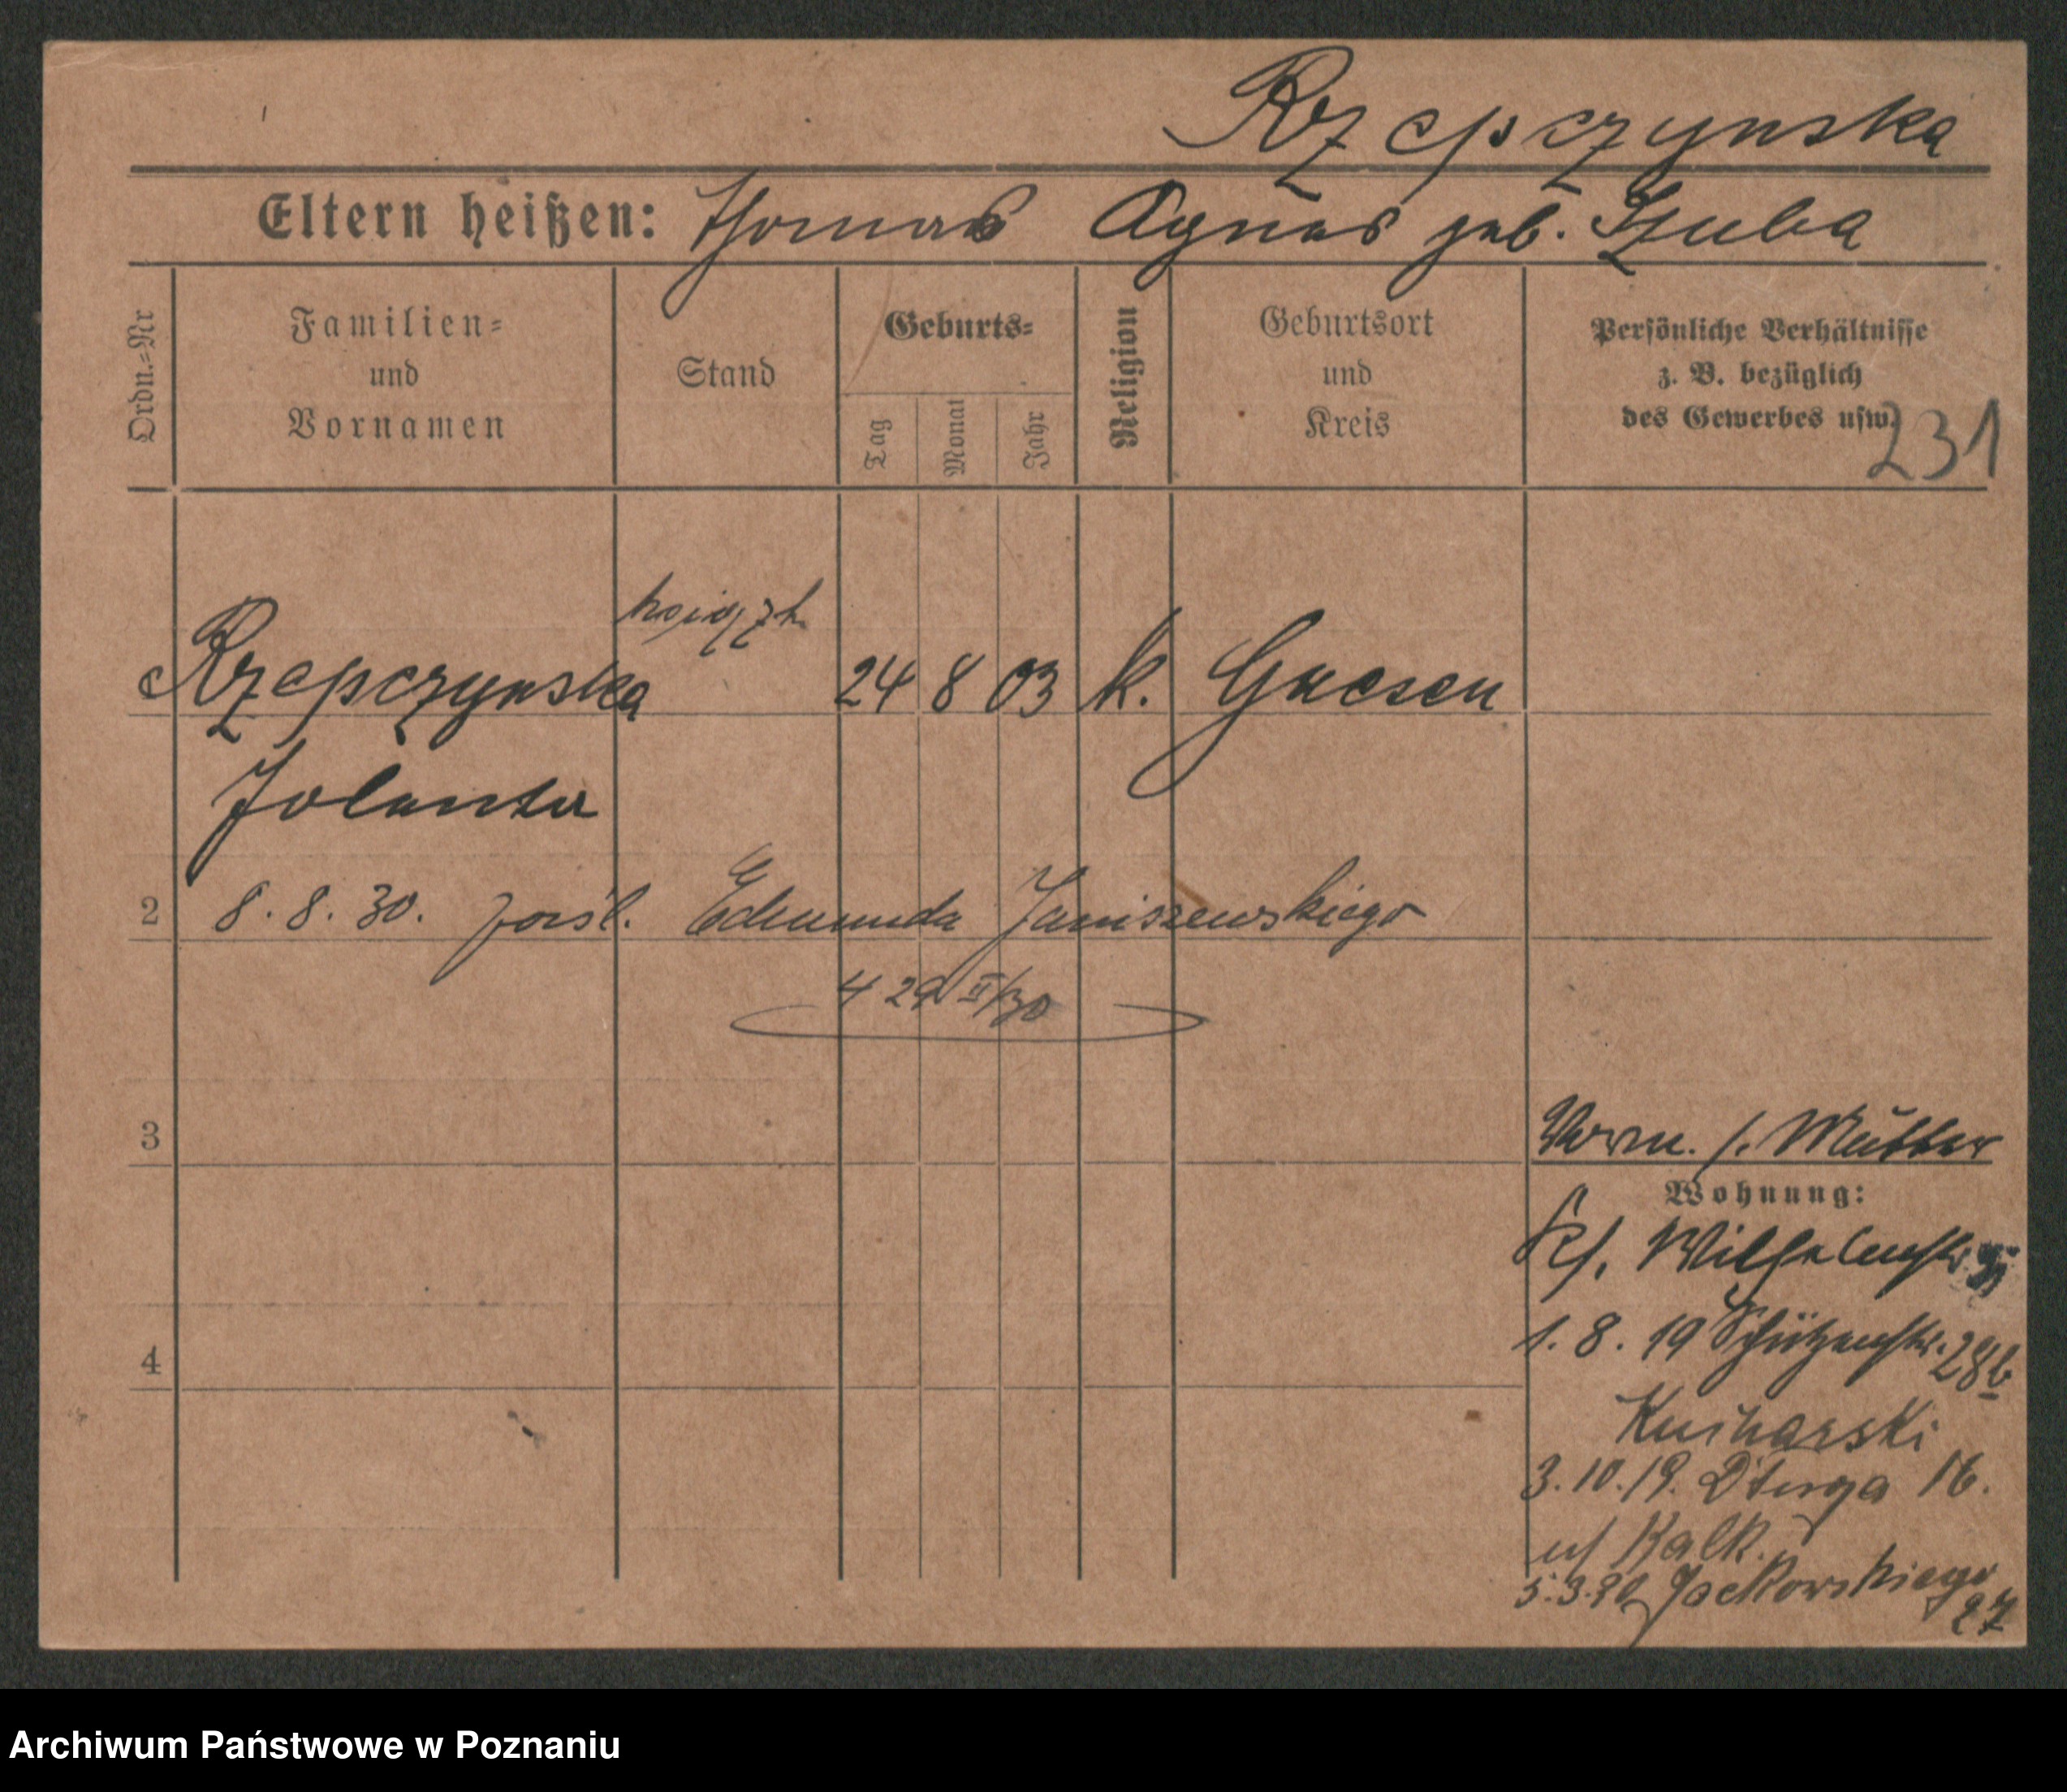 Rzepczynska
Eltern heißen: Thomas Agnes geb. Szuba
Ordn.=Nr
Familien=
und
Vornamen
Stand
Geburts=
Tag
Monat
Jahr
Religion
Geburtsort
und
Kreis
Persönliche Verhältnisse
z. B. bezüglich
des Gewerbes usw.
231
Rzepczynska 24 8 03 k. Gnesen
Jolanta
2 8. 8. 30. pośl. Edmunda Janiszewskiego
3
Vorm. s. Mutter
Wohnung:
Wilhelmstr.
4
1. 8. 19 Schützenstr. 28b
Kucharski
3. 10. 19. Długa 16.
u/ Kalk.
5. 3. 20 Jackowskiego
27
Archiwum Państwowe w Poznaniu